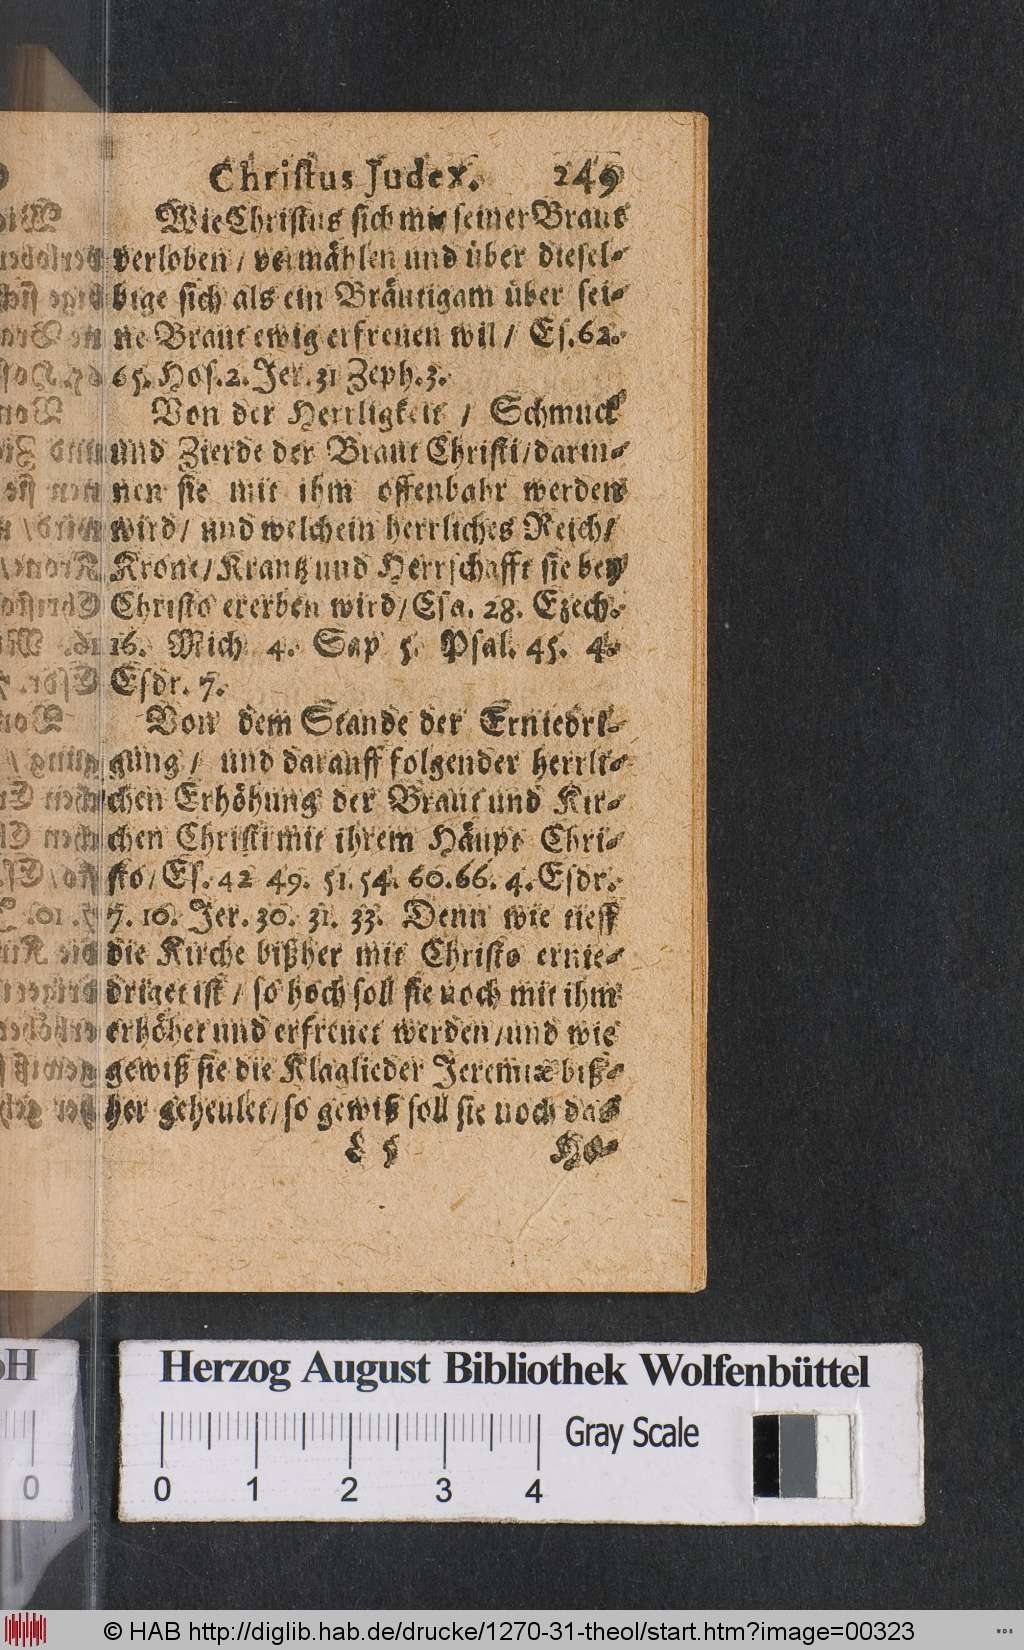 Christus Judex. 249
Wie Christus sich mit seiner Braut
verloben / vermählen und über diesel-
bige sich als ein Bräutigam über sei-
ne Braut ewig erfreuen wil / Es. 62.
65. Hos. 2. Jer. 31 Zeph. 3.
Von der Herrligkeit / Schmuck
und Zierde der Braut Christi / darin-
nen sie mit ihm offenbahr werden
wird / und welch ein herrliches Reich /
Krone / Krantz und Herrschafft sie bey
Christo ererben wird / Esa. 28. Ezech.
16. Mich 4. Sap 5. Psal. 45. 4.
Esdr. 7.
Von dem Stande der Erniedri-
gung / und darauff folgender herrli-
chen Erhöhung der Braut und Kir-
chen Christi mit ihrem Häupt Chri-
sto / Es. 42 49. 51. 54. 60. 66. 4. Esdr.
7. 10. Jer. 30. 31. 33. Denn wie tieff
die Kirche bißher mit Christo ernie-
driget ist / so hoch soll sie noch mit ihm
erhöhet und erfreuet werden / und wie
gewiß sie die Klaglieder Jeremiæ biß-
her geheulet / so gewiß soll sie noch das
L 5 Ho-
Herzog August Bibliothek Wolfenbüttel
Gray Scale
0 0 1 2 3 4
© HAB http://diglib.hab.de/drucke/1270-31-theol/start.htm?image=00323